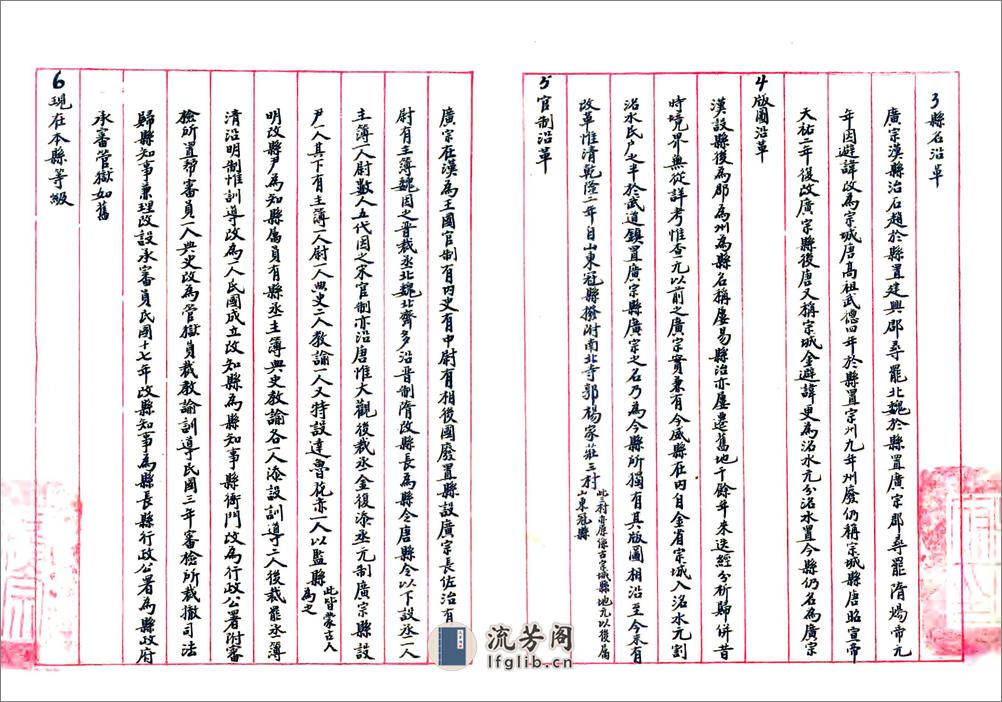 3 縣名沿革
廣宗漢縣治石趙於縣置建興郡尋罷北魏於縣置廣宗郡尋罷隋煬帝元
年因避諱改為宗城唐高祖武德四年於縣置宗州九年州廢仍稱宗城縣唐昭宣帝
天祐二年復改廣宗縣後唐又稱宗城金避諱更為洺水元分洺水置今縣仍名為廣宗
4 版圖沿革
漢設縣後為郡為州為縣名稱屢易縣治亦屢遷舊地千餘年來迭經分析歸併昔
時境界無從詳考惟查元以前之廣宗實兼有今威縣在內自金省宗城入洺水元割
洺水民戶之半於武道鎮置廣宗縣廣宗之名乃為今縣所獨有其版圖相沿至今未有
改革惟清乾隆二年自山東冠縣撥附南北寺郭楊家莊三村此三村亦原係古宗城縣地元以後屬山東冠縣
5 官制沿革
廣宗在漢為王國官制有內史有中尉有相後國廢置縣設廣宗長佐治有
尉有主簿魏因之晉裁丞北魏北齊多沿晉制隋改縣長為縣令唐縣令以下設丞一人
主簿一人尉數人五代因之宋官制亦沿唐惟大觀後裁丞金復添丞元制廣宗縣設
尹一人其下有主簿一人尉一人典史二人教諭一人又特設達魯花赤一人以監縣此皆蒙古人為之
明改縣尹為知縣属員有縣丞主簿典史教諭各一人添設訓導二人後裁罷丞簿
清沿明制惟訓導改為一人民國成立改知縣為縣知事縣衙門改為行政公署附審
檢所置幫審員一人典史改為管獄員裁教諭訓導民國三年審檢所裁撤司法
歸縣知事兼理改設承審員民國十七年改縣知事為縣長縣行政公署為縣政府
承審管獄如舊
6 現在本縣等級
流芳阁
lfglib.cn